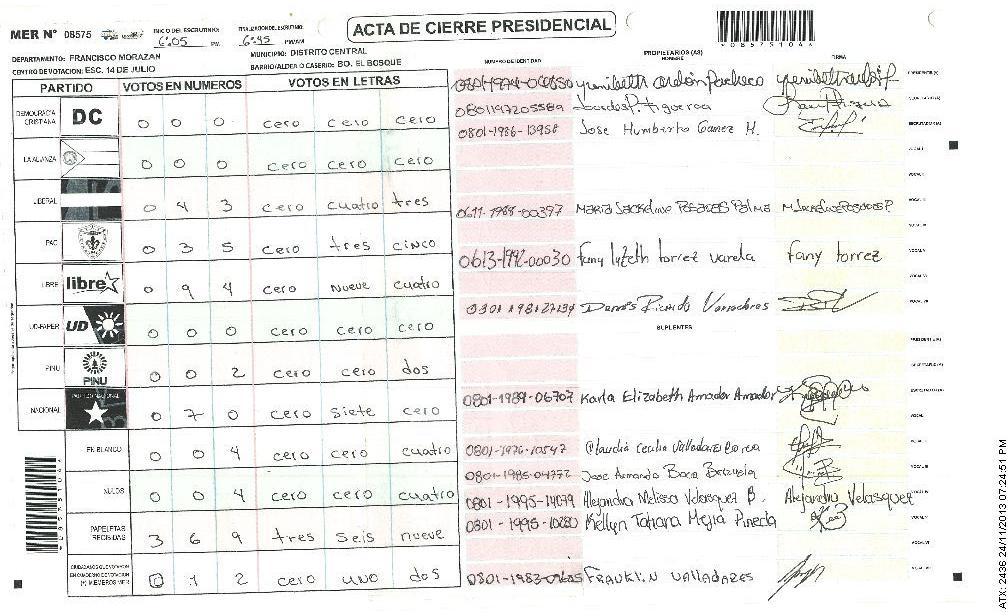 ACTA DE CIERRE PRESIDENCIAL
MER N° 08575
INICIO DEL ESCRUTINIO: 6:05 PM
08575104
DEPARTAMENTO: FRANCISCO MORAZAN
MUNICIPIO: DISTRITO CENTRAL
CENTRO DE VOTACION: ESC. 14 DE JULIO
BARRIO/ALDEA O CASERIO: BO. EL BOSQUE
PARTIDO VOTOS EN NUMEROS VOTOS EN LETRAS
DEMOCRACIA CRISTIANA DC 0 0 0 cero cero cero
LA ALIANZA 0 0 0 cero cero cero
LIBERAL 0 4 3 cero cuatro tres
PAC 0 3 5 cero tres cinco
LIBRE libre 0 9 4 cero nueve cuatro
UD-FAPER UD 0 0 0 cero cero cero
PINU PINU 0 0 2 cero cero dos
NACIONAL PARTIDO NACIONAL 0 7 0 cero siete cero
EN BLANCO 0 0 4 cero cero cuatro
NULOS 0 0 4 cero cero cuatro
PAPELETAS RECIBIDAS 3 6 9 tres seis nueve
CIUDADANOS QUE VOTARON EN CUADERNO DE VOTACION (+) MIEMBROS MER 0 1 2 cero uno dos
NUMERO DE IDENTIDAD PROPIETARIOS (AS) NOMBRE FIRMA
Pacheco PRESIDENTE(A)
Lourdes P. Figueroa
0801-1986-13958 Jose Humberto Gamez M. SECRETARIO(A)
VOCAL I
VOCAL II
0611-1988-00397 Maria Jackeline Posadas Palma
0613-1992-00030 Fany lyzeth torrez varela Fany torrez
Ricardo
SUPLENTES
PRESIDENTE(A)
SECRETARIO(A)
0801-1989-06707 Karla Elizabeth Amador Amador
VOCAL I
0801-1976-10547 Claudia Cecilia Valladares
0801-1985-04772 Jose Armando Baca
0801-1995-14079 Alejandra Melissa Velasquez B. Alejandra Velasquez
0801-1995-10280 Kellyn Tatiana Mejia Pineda
FRANKLIN VALLADARES
ATX: 2436 24/11/2013 07:24:51 PM